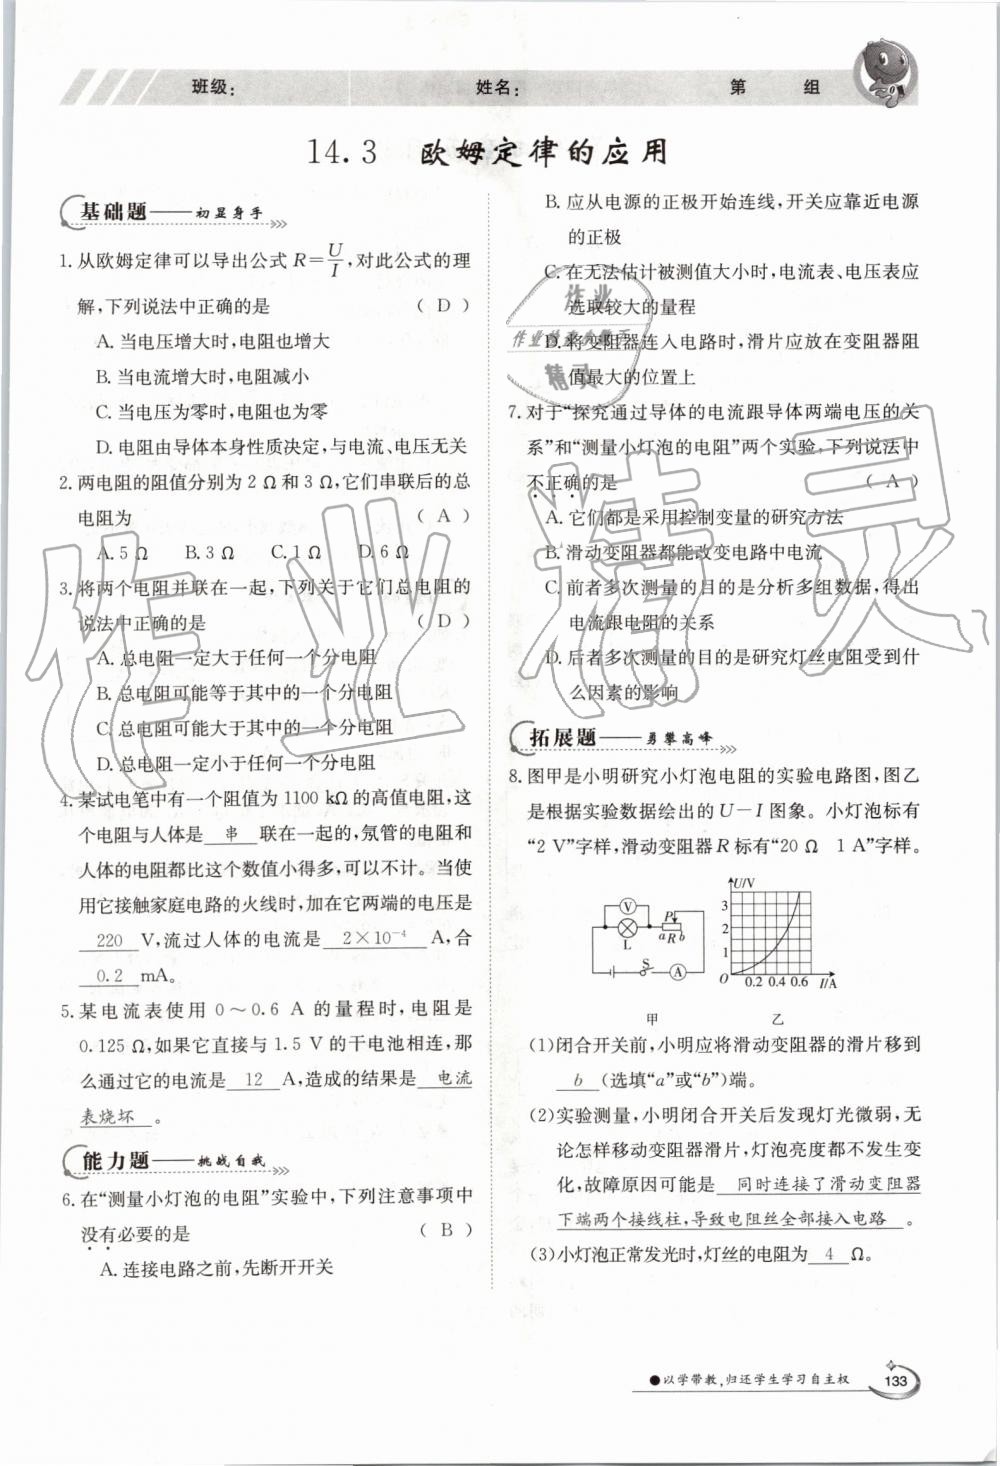 班级：
姓名：
第　　组
14.3　欧姆定律的应用
基础题——初显身手
1. 从欧姆定律可以导出公式 R=U/I，对此公式的理
解，下列说法中正确的是　（ D ）
A. 当电压增大时，电阻也增大
B. 当电流增大时，电阻减小
C. 当电压为零时，电阻也为零
D. 电阻由导体本身性质决定，与电流、电压无关
2. 两电阻的阻值分别为 2 Ω 和 3 Ω，它们串联后的总
电阻为　（ A ）
A. 5 Ω　B. 3 Ω　C. 1 Ω　D. 6 Ω
3. 将两个电阻并联在一起，下列关于它们总电阻的
说法中正确的是　（ D ）
A. 总电阻一定大于任何一个分电阻
B. 总电阻可能等于其中的一个分电阻
C. 总电阻可能大于其中的一个分电阻
D. 总电阻一定小于任何一个分电阻
4. 某试电笔中有一个阻值为 1100 kΩ 的高值电阻，这
个电阻与人体是 串 联在一起的，氖管的电阻和
人体的电阻都比这个数值小得多，可以不计。当使
用它接触家庭电路的火线时，加在它两端的电压是
220 V，流过人体的电流是 2×10⁻⁴ A，合
0.2 mA。
5. 某电流表使用 0～0.6 A 的量程时，电阻是
0.125 Ω，如果它直接与 1.5 V 的干电池相连，那
么通过它的电流是 12 A，造成的结果是 电流
表烧坏 。
能力题——挑战自我
6. 在“测量小灯泡的电阻”实验中，下列注意事项中
没有必要的是　（ B ）
A. 连接电路之前，先断开开关
B. 应从电源的正极开始连线，开关应靠近电源
的正极
C. 在无法估计被测值大小时，电流表、电压表应
选取较大的量程
D. 将变阻器连入电路时，滑片应放在变阻器阻
值最大的位置上
7. 对于“探究通过导体的电流跟导体两端电压的关
系”和“测量小灯泡的电阻”两个实验，下列说法中
不正确的是　（ A ）
A. 它们都是采用控制变量的研究方法
B. 滑动变阻器都能改变电路中电流
C. 前者多次测量的目的是分析多组数据，得出
电流跟电阻的关系
D. 后者多次测量的目的是研究灯丝电阻受到什
么因素的影响
拓展题——勇攀高峰
8. 图甲是小明研究小灯泡电阻的实验电路图，图乙
是根据实验数据绘出的 U－I 图象。小灯泡标有
“2 V”字样，滑动变阻器 R 标有“20 Ω　1 A”字样。
V
L
P
a R b
S
A
U/V
3
2
1
O　0.2 0.4 0.6　I/A
甲　乙
(1)闭合开关前，小明应将滑动变阻器的滑片移到
b (选填“a”或“b”)端。
(2)实验测量，小明闭合开关后发现灯光微弱，无
论怎样移动变阻器滑片，灯泡亮度都不发生变
化，故障原因可能是 同时连接了滑动变阻器
下端两个接线柱，导致电阻丝全部接入电路 。
(3)小灯泡正常发光时，灯丝的电阻为 4 Ω。
●以学带教，归还学生学习自主权
133
作业精灵
作业
精灵